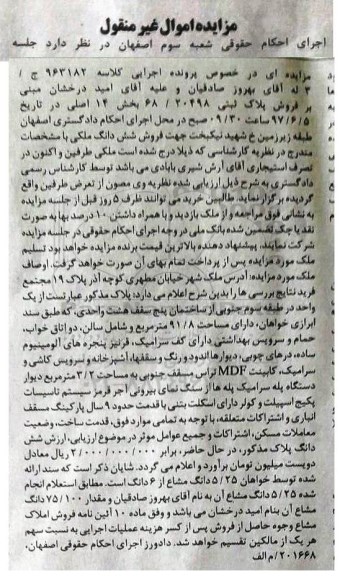 مزایده اموال غیر منقول
اجرای احکام حقوقی شعبه سوم اصفهان در نظر دارد جلسه
مزایده ای در خصوص پرونده اجرایی کلاسه ۹۶۳۱۸۲ ج /
۳ له آقای بهروز صادقیان و علیه آقای امید درخشان مبنی
بر فروش پلاک ثبتی ۲۰۴۹۸ / ۶۸ بخش ۱۴ اصلی در تاریخ
۹۷/۶/۵ ساعت ۰۹/۳۰ صبح در محل اجرای احکام دادگستری اصفهان
طبقه زیرزمین خ شهید نیکبخت جهت فروش شش دانگ ملکی با مشخصات
مندرج در نظریه کارشناسی که ذیلا درج شده است ملکی طرفین و اکنون در
تصرف استیجاری آقای آرش شیری بابادی می باشد توسط کارشناس رسمی
دادگستری به شرح ذیل ارزیابی شده نظریه وی مصون از تعرض طرفین واقع
گردیده برگزار نماید. طالبین خرید می توانند ظرف ۵ روز قبل از جلسه مزایده
به نشانی فوق مراجعه و از ملک بازدید و با همراه داشتن ۱۰ درصد بها به صورت
نقد یا چک تضمین شده بانک ملی در وجه اجرای احکام حقوقی در جلسه مزایده
شرکت نمایند. پیشنهاد دهنده بالاترین قیمت برنده مزایده خواهد بود تسلیم
ملک مورد مزایده پس از پرداخت تمام بهای آن صورت خواهد گرفت. اوصاف
ملک مورد مزایده: آدرس ملک شهر خیابان مطهری کوچه آذر پلاک ۱۹ مجتمع
فرید نتایج بررسی ها را بدین شرح اعلام می دارد: پلاک مذکور عبارتست از یک
واحد در طبقه سوم جنوبی از ساختمان پنج سقف هشت واحدی، که طبق سند
ابرازی خواهان، دارای مساحت ۹۱/۸ مترمربع و شامل سالن، دو اتاق خواب،
حمام و سرویس بهداشتی دارای کف سرامیک، قرنیز پنجره های آلومینیوم
ساده، درهای چوبی، دیوارها اندود و رنگ و سقفها، آشپزخانه و سرویس کاشی و
سرامیک، کابینت MDF تراس مسقف جنوبی به مساحت ۳/۲ مترمربع دیوار
دستگاه پله سرامیک پله ها از سنگ نمای بیرونی آجر قرمز سیستم تاسیسات
پکیج اسپیلت و کولر دارای اسکلت بتنی با قدمت حدود ۹ سال پارکینگ مسقف
انباری و اشتراکات متعلقه، با توجه به تمامی موارد فوق، قدمت ساخت، وضعیت
معاملات مسکن، اشتراکات و جمیع عوامل موثر در موضوع ارزیابی، ارزش شش
دانگ پلاک مذکور، در حال حاضر، برابر ۲/۰۰۰/۰۰۰/۰۰۰ ریال معادل
دویست میلیون تومان برآورد و اعلام می گردد. شایان ذکر است که سند ارائه
شده توسط خواهان ۵/۲۵ دانگ مشاع از ۶ دانگ است. مطابق استعلام انجام
شده ۵/۲۵ دانگ مشاع آن به نام آقای بهروز صادقیان و مقدار ۷۵/۱۰۰ دانگ
مشاع آن بنام امید درخشان می باشد و وفق ماده ۱۰ آئین نامه فروش املاک
مشاع وجوه حاصل از فروش پس از کسر هزینه عملیات اجرایی به نسبت سهم
هر یک از مالکین تقسیم خواهد شد. دادورز اجرای احکام حقوقی اصفهان.
۲۰۱۶۶۸/م الف